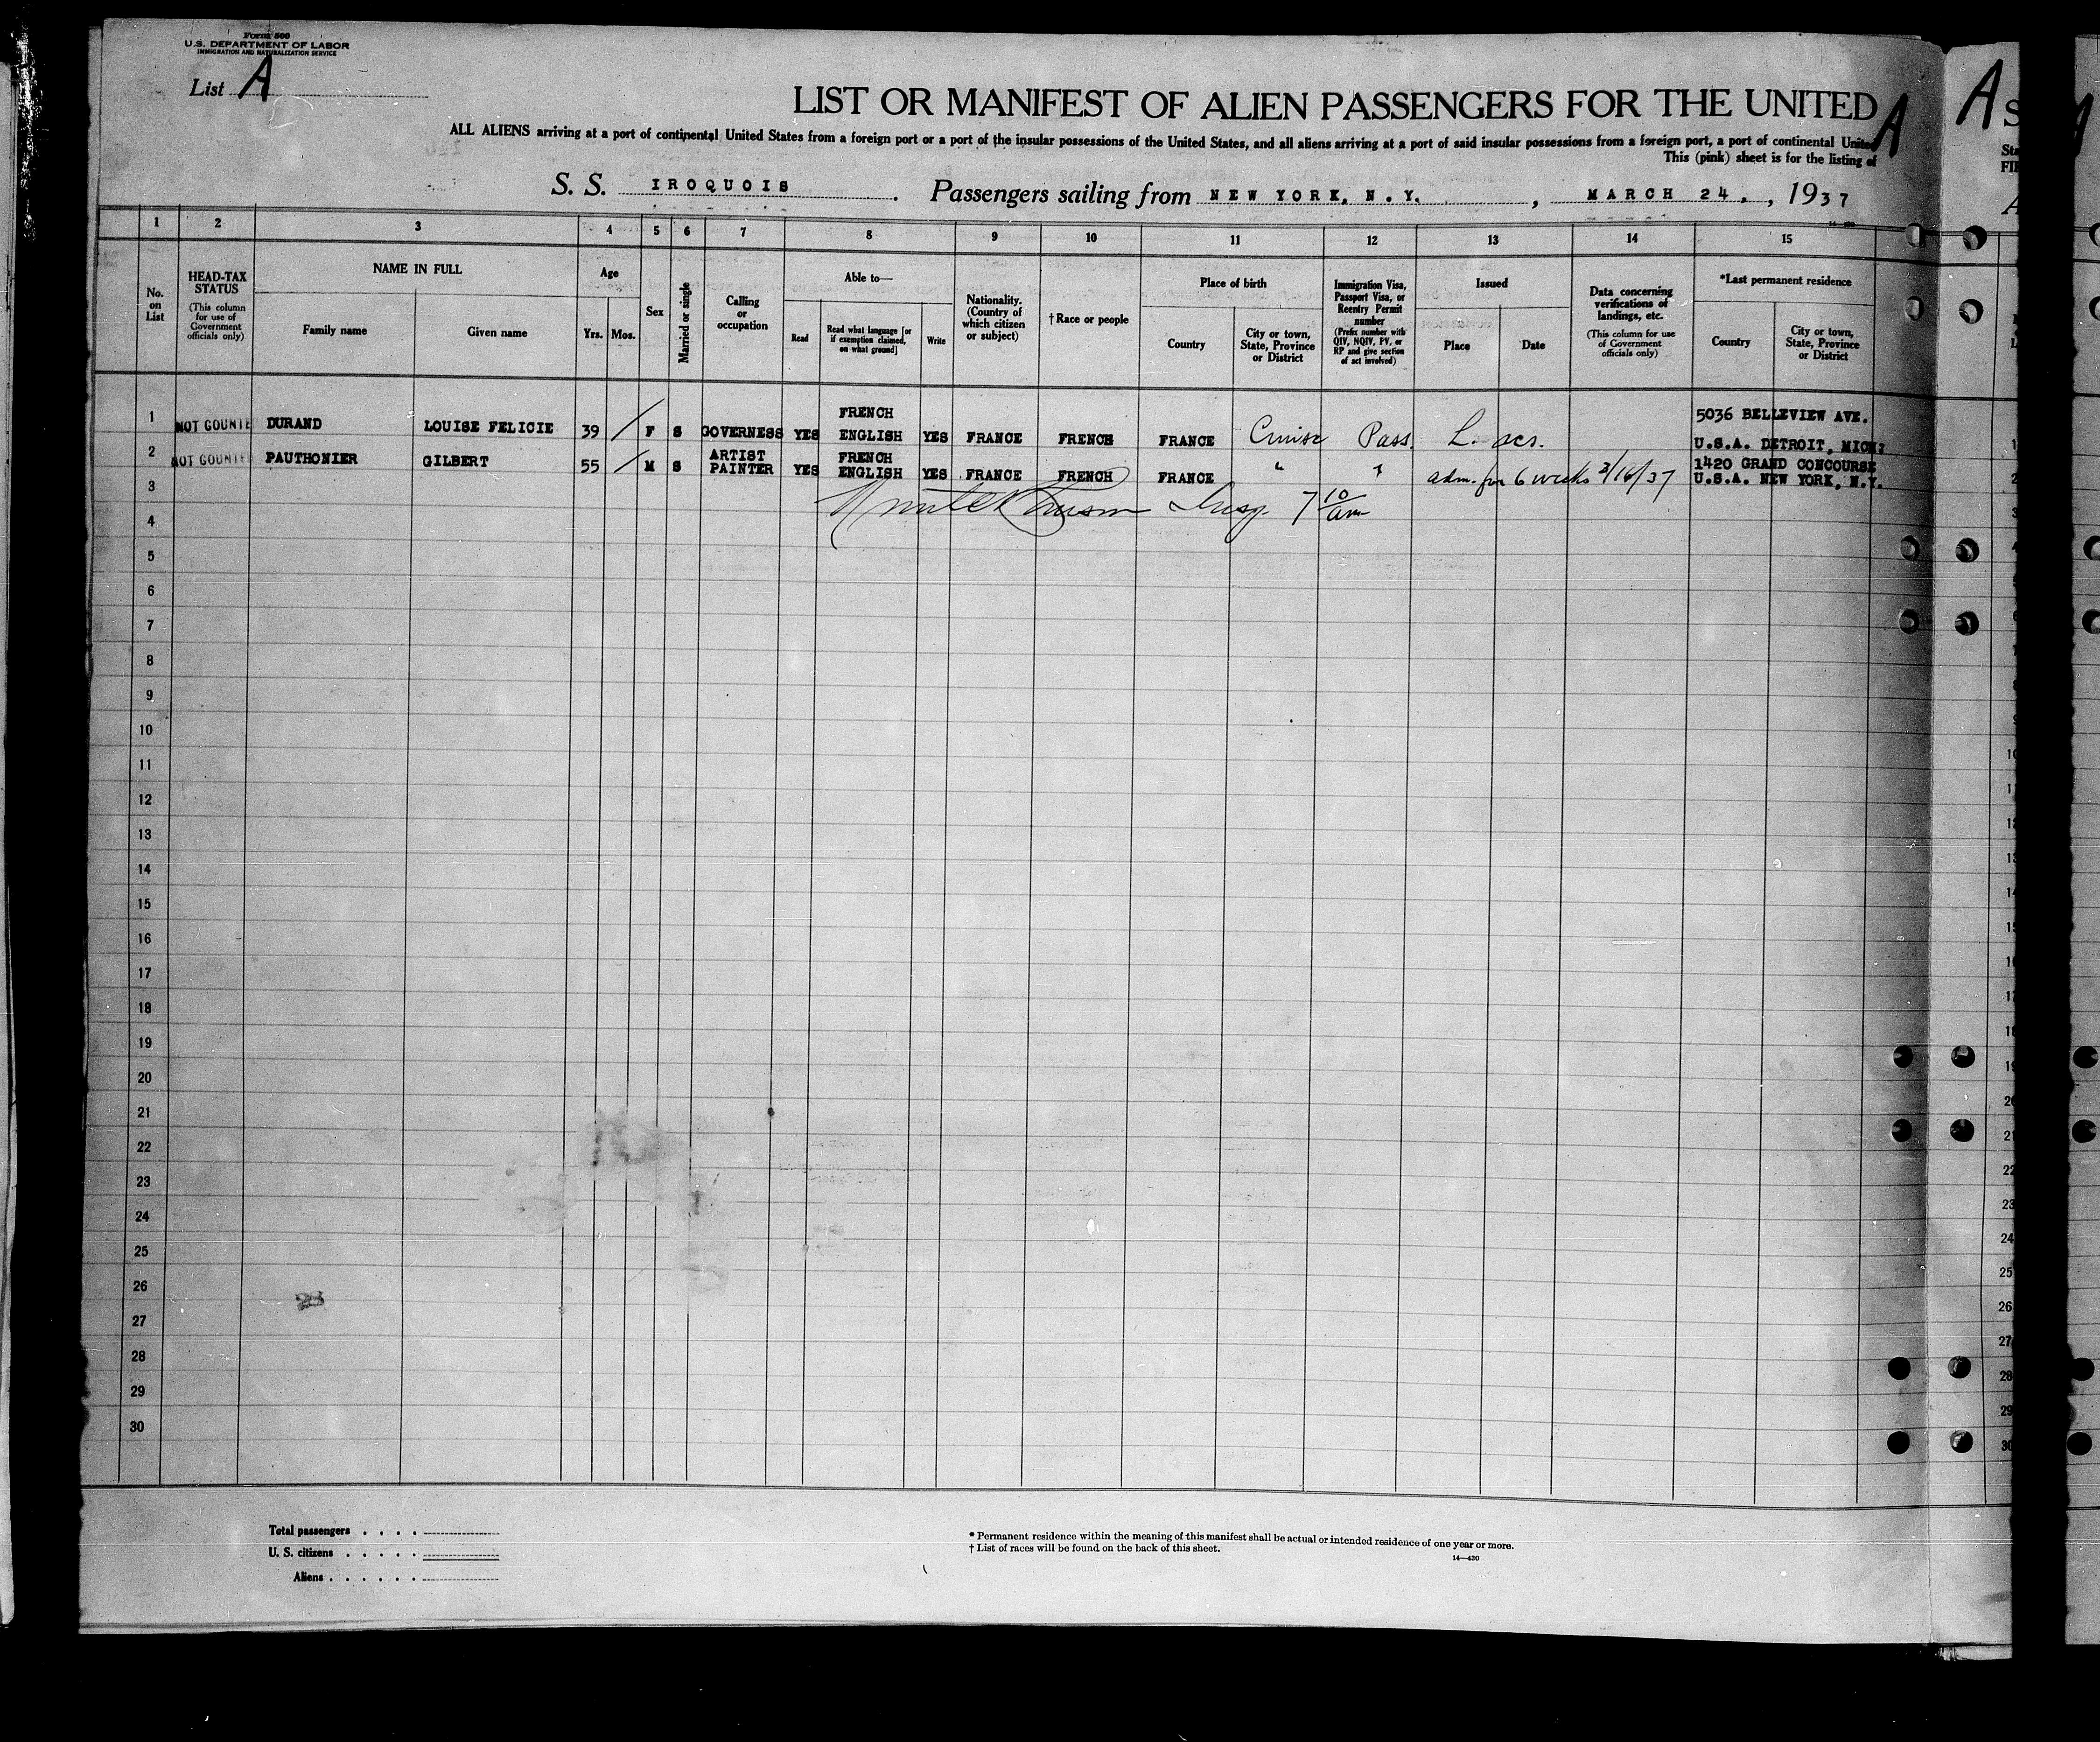 Form 500
U.S. DEPARTMENT OF LABOR
IMMIGRATION AND NATURALIZATION SERVICE
List A
LIST OR MANIFEST OF ALIEN PASSENGERS FOR THE UNITED
A
A
ALL ALIENS arriving at a port of continental United States from a foreign port or a port of the insular possessions of the United States, and all aliens arriving at a port of said insular possessions from a foreign port, a port of continental United
This (pink) sheet is for the listing of
S. S. IROQUOIS. Passengers sailing from NEW YORK, N.Y., MARCH 24, , 1937
1 2 3 4 5 6 7 8 9 10 11 12 13 14 15
No. on List
HEAD-TAX STATUS
(This column for use of Government officials only)
NAME IN FULL
Family name
Given name
Age
Yrs. Mos.
Sex
Married or single
Calling or occupation
Able to—
Read
Read what language [or if exemption claimed, on what ground]
Write
Nationality. (Country of which citizen or subject)
† Race or people
Place of birth
Country
City or town, State, Province or District
Immigration Visa, Passport Visa, or Reentry Permit number
(Prefix number with QIV, NQIV, PV, or RP and give section of act involved)
Issued
Place
Date
Data concerning verifications of landings, etc.
(This column for use of Government officials only)
*Last permanent residence
Country
City or town, State, Province or District
1 NOT COUNTE DURAND LOUISE FELICIE 39 / F S GOVERNESS YES FRENCH ENGLISH YES FRANCE FRENCH FRANCE Cruise Pass. L. 5036 BELLEVIEW AVE.
U.S.A. DETROIT, MICH:
2 NOT COUNTE PAUTHONIER GILBERT 55 / M S ARTIST PAINTER YES FRENCH ENGLISH YES FRANCE FRENCH FRANCE " " adm. for 6 weeks 3/16/37 1420 GRAND CONCOURSE
U.S.A. NEW YORK, N.Y.
3 Insp. 7 10/am
4
5
6
7
8
9
10
11
12
13
14
15
16
17
18
19
20
21
22
23
24
25
26
27
28
29
30
Total passengers . . . .
U. S. citizens . . . . .
Aliens . . . . . .
* Permanent residence within the meaning of this manifest shall be actual or intended residence of one year or more.
† List of races will be found on the back of this sheet.
14—430